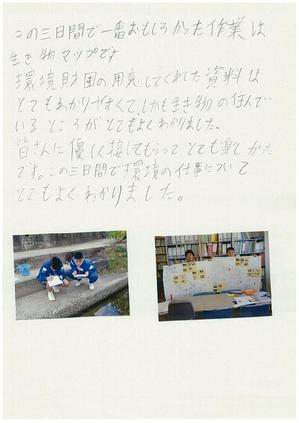 この三日間で一番おもしろかた作業は
生き物マップです
環境財団の用意してくれた資料は
とてもわかりやすくて、しかも生き物の住んで
いるところがとてもよくわかりました。
皆さんに優しく接してもらってとても楽しかた
です。この三日間で環境の仕事について
とてもよくわかりました。